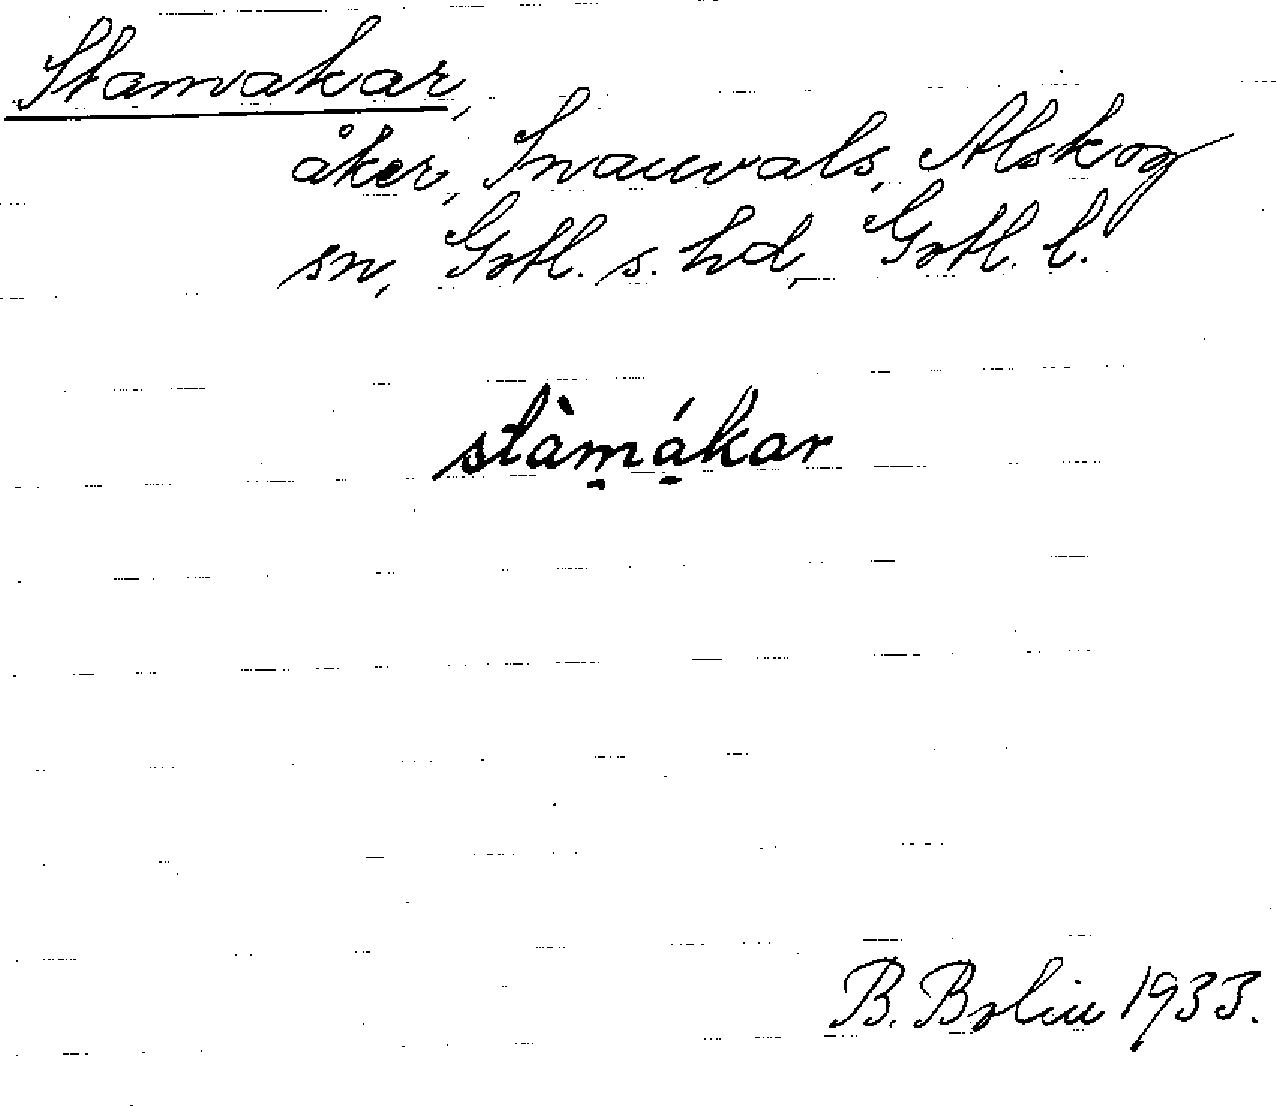 Stamakar,
åker, Snauvals, Alskog
sn, Gotl. s. hd, Gotl. l.
stàmákar
B. Bolin 1933.